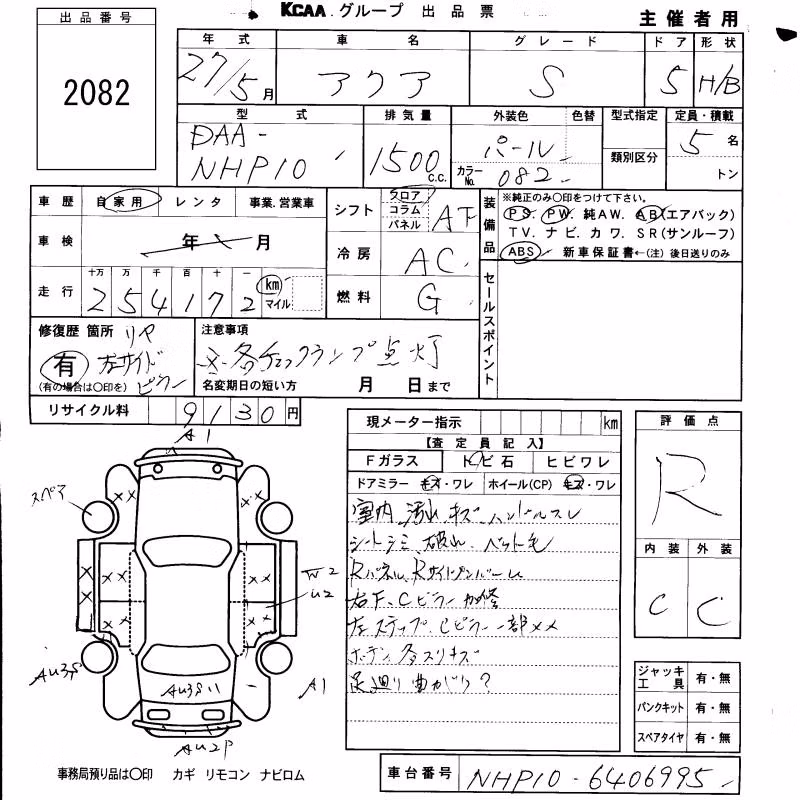 KCAA.グループ 出品票
主催者用
出品番号
2082
年式 車名 グレード ドア 形状
27/5月 アクア S 5 H/B
型式 排気量 外装色 色替 型式指定 定員・積載
DAA-
NHP10 1500 c.c. パール 5名
カラーNo. 082 類別区分 トン
車歴 自家用 レンタ 事業.営業車
車検 年 月
走行 十万 万 千 百 十 一
254172 km マイル
シフト フロア コラム パネル AT
冷房 AC
燃料 G
装備品
※純正のみ○印をつけて下さい。
PS. PW. 純AW. AB(エアバック)
TV. ナビ. カワ. SR(サンルーフ)
ABS 新車保証書←(注) 後日送りのみ
セールスポイント
修復歴 箇所 リヤ
有 右サイド
(有の場合は○印を) ピラー
注意事項
各チェックランプ点灯
名変期日の短い方 月 日まで
リサイクル料 9130円
現メーター指示 km
【査定員記入】
Fガラス トビ石 ヒビワレ
ドアミラー キズ・ワレ ホイール(CP) キズ・ワレ
室内 汚れ キズ ハンドルスレ
シートシミ、破れ、ペット毛
Rパネル、Rサイドメンバー
右F、Cピラー 加修
左ステップ、Cピラー一部メメ
ボデー各スリキズ
足廻り曲がり?
評価点
R
内装 外装
C C
ジャッキ
工具 有・無
パンクキット 有・無
スペアタイヤ 有・無
A1
スペア
××
××
××
××
××
W2
U2
AU3S
AU3S
A1
AU2P
事務局預り品は○印 カギ リモコン ナビロム
車台番号 NHP10-6406995